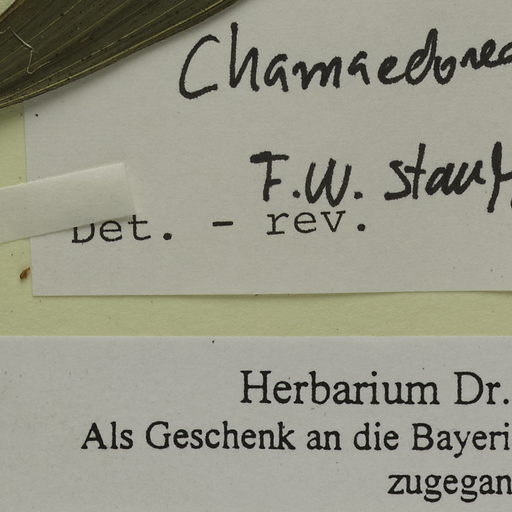 Chamaedorea
F.W. Stauf
Det. - rev.
Herbarium Dr.
Als Geschenk an die Bayeri
zugegan